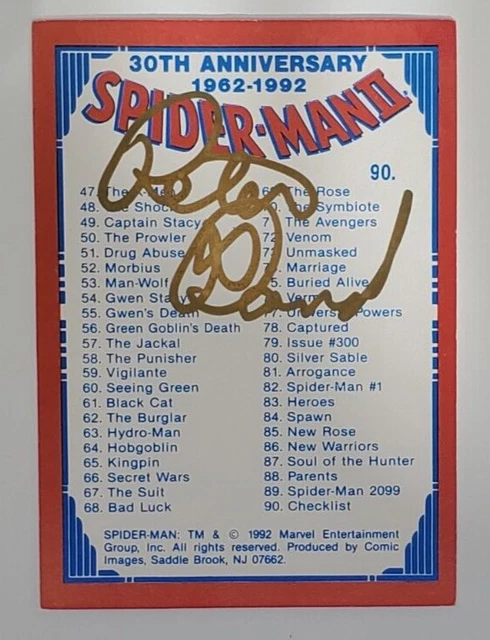 30TH ANNIVERSARY
1962-1992
SPIDER-MAN II
Peter
David
90.
47. The X-Men
48. The Shocker
49. Captain Stacy
50. The Prowler
51. Drug Abuse
52. Morbius
53. Man-Wolf
54. Gwen Stacy
55. Gwen's Death
56. Green Goblin's Death
57. The Jackal
58. The Punisher
59. Vigilante
60. Seeing Green
61. Black Cat
62. The Burglar
63. Hydro-Man
64. Hobgoblin
65. Kingpin
66. Secret Wars
67. The Suit
68. Bad Luck
69. The Rose
70. The Symbiote
71. The Avengers
72. Venom
73. Unmasked
74. Marriage
75. Buried Alive
76. Vermin
77. Universal Powers
78. Captured
79. Issue #300
80. Silver Sable
81. Arrogance
82. Spider-Man #1
83. Heroes
84. Spawn
85. New Rose
86. New Warriors
87. Soul of the Hunter
88. Parents
89. Spider-Man 2099
90. Checklist
SPIDER-MAN: TM & © 1992 Marvel Entertainment
Group, Inc. All rights reserved. Produced by Comic
Images, Saddle Brook, NJ 07662.